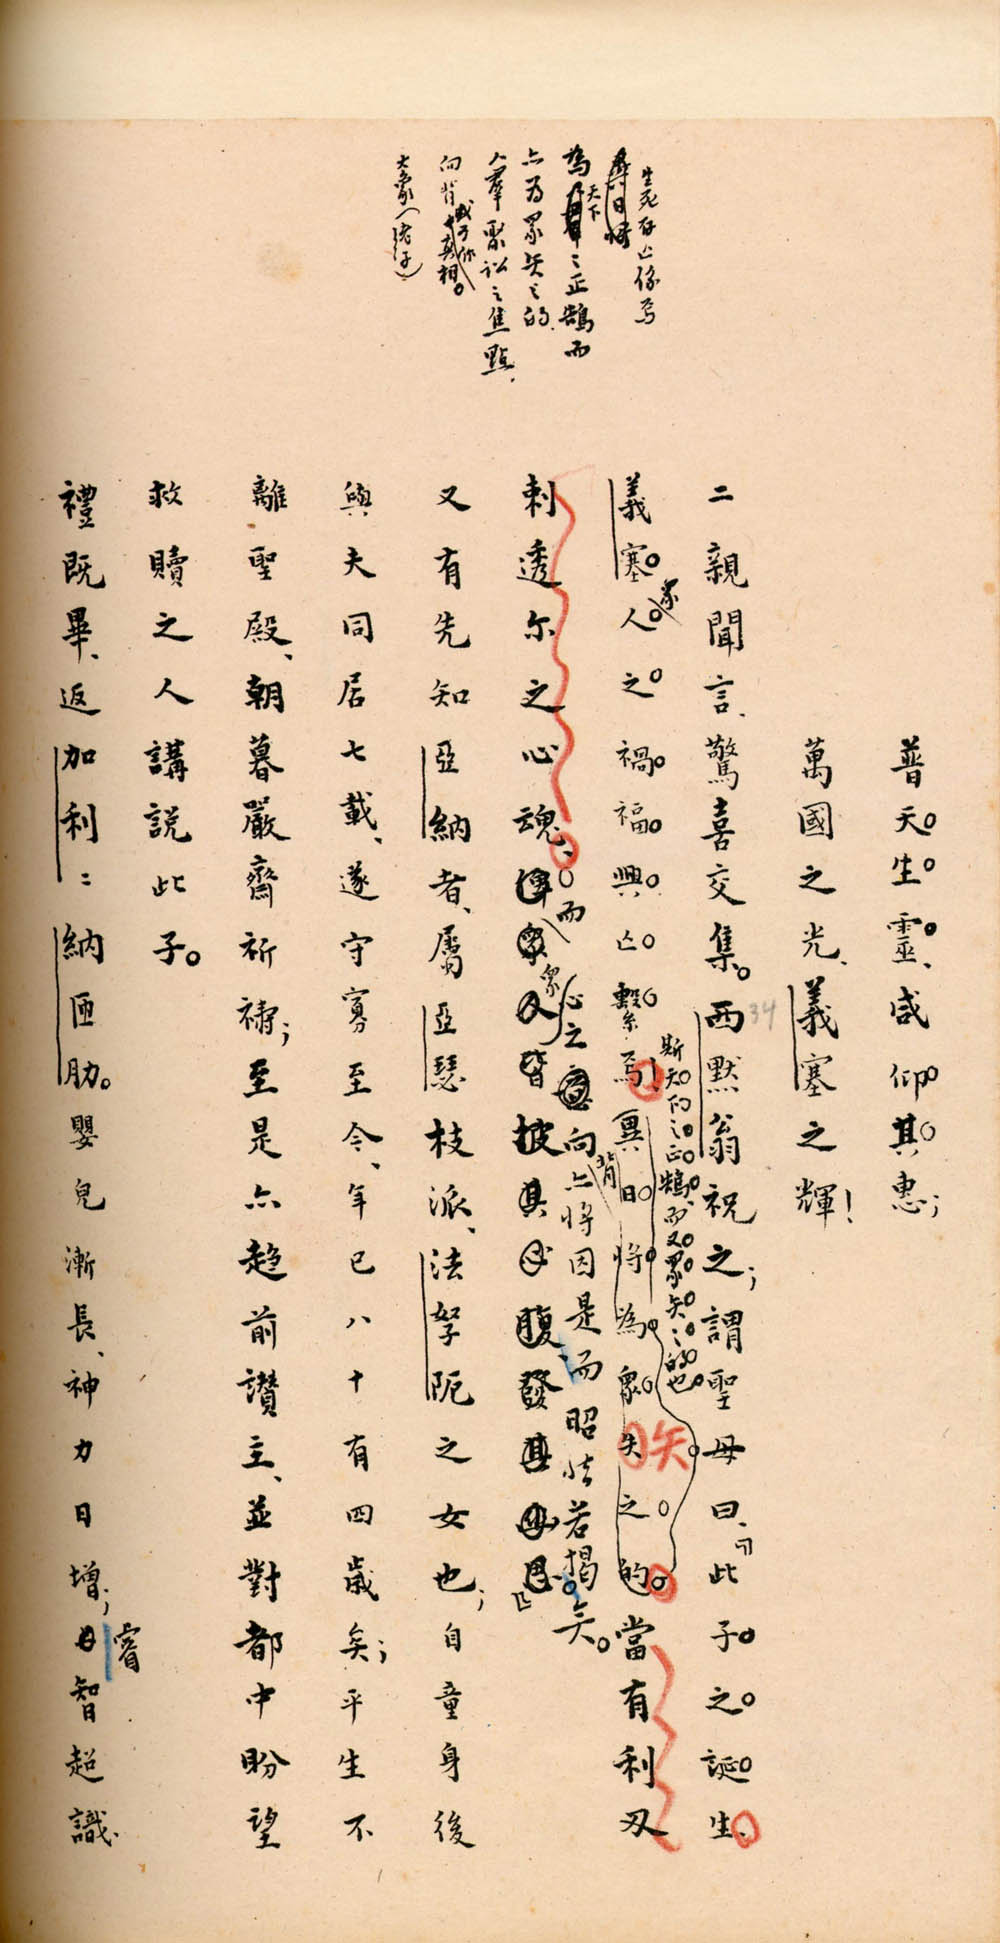 生死存亡係焉
異日將
為天下之正鵠而
亦為眾矢之的
人羣聚訟之焦點
向背
真相
大象（老子）
普天生靈、咸仰其惠；
萬國之光、義塞之輝！
二親聞言、驚喜交集。西默翁祝之；謂聖母曰、「此子之誕生、
34
斯天下之正鵠、而又眾矢之的也
義塞人之禍福興亡繫焉、異日將為眾矢之的。當有利刃
家
矢
刺透尔之心魂、
而眾心之向背亦將因是而昭然若揭矣。
皆披其心腹、發其
又有先知亞納者、屬亞瑟枝派、法拏阨之女也；自童身後
與夫同居七載、遂守寡至今、年已八十有四歲矣；平生不
離聖殿、朝暮嚴齋祈禱；至是亦趨前讚主、並對都中盼望
救贖之人講説此子。
禮既畢、返加利二納匝肋。嬰兒漸長、神力日增；睿智超識